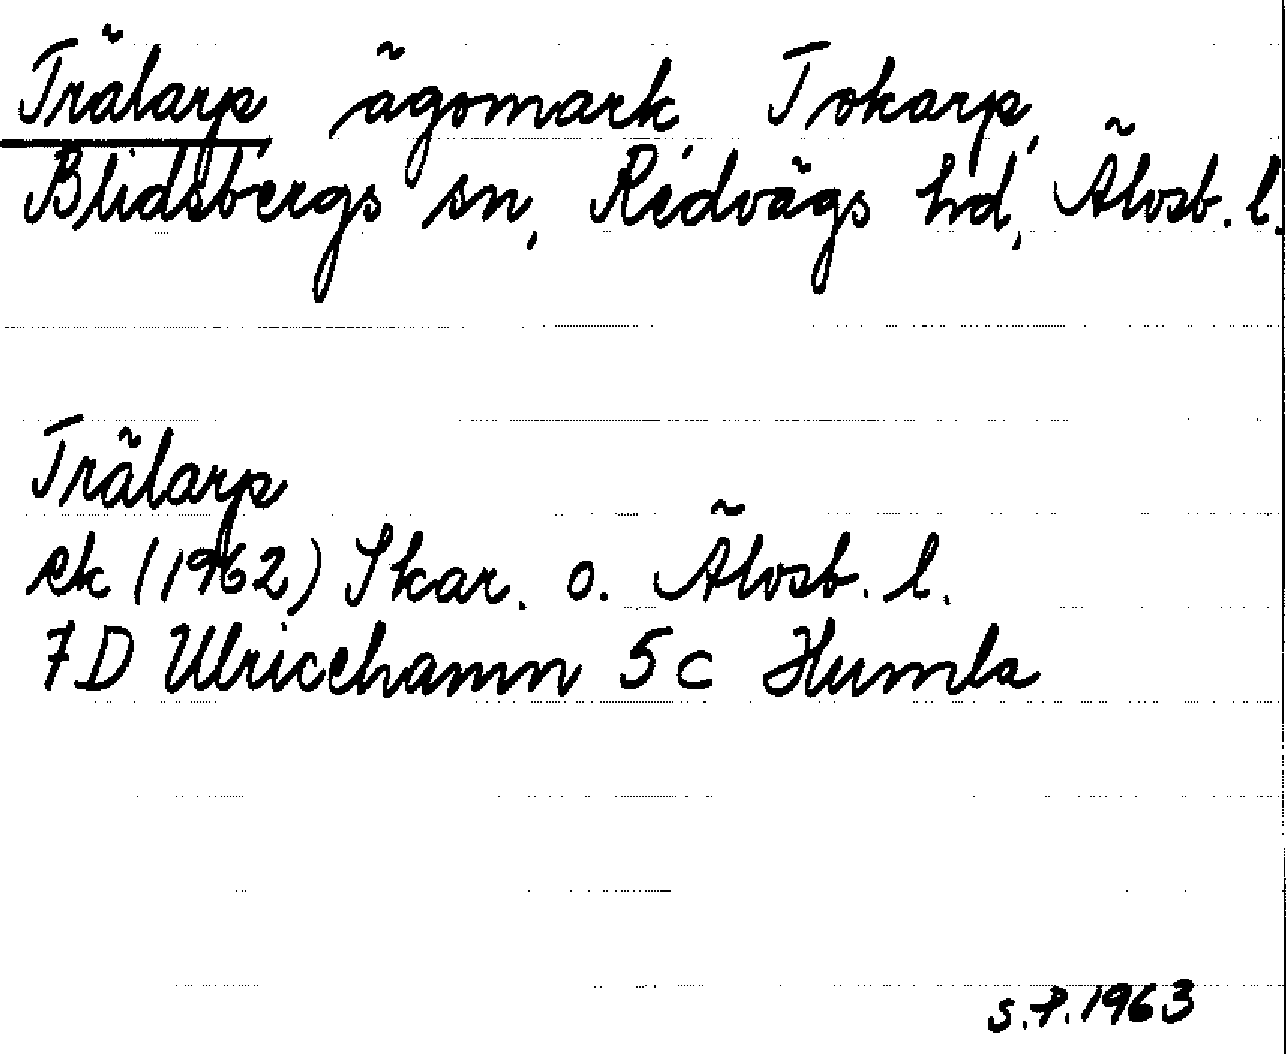 Trälarp ägomark, Tokarp,
Blidsbergs sn, Redvägs hd, Älvsb. l.
Trälarp
ek (1962) Skar. o. Älvsb. l.
7D Ulricehamn 5 c Humla
S.P. 1963